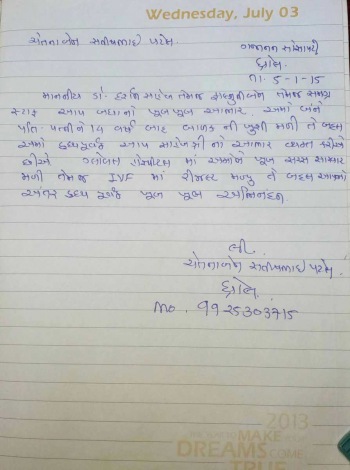 Wednesday, July 03
ચેતનાબેન સતીષભાઇ પટેલ.
ગજાનન સોસાયટી
ધ્રોલ.
તા. 5-1-15
માનનીય ડૉ. દર્શન સાહેબ તેમજ ફાલ્ગુનીબેન તેમજ સમગ્ર
સ્ટાફ આપ બધાનો ખૂબ ખૂબ આભાર. અમો બંને
પતિ-પત્નીને 14 વર્ષ બાદ બાળક ની ખુશી મળી તે બદલ
અમો હૃદયપૂર્વક આપ સાહેબશ્રી નો આભાર વ્યક્ત કરીએ
છીએ હોસ્પિટલ માં અમોને ખૂબ સરસ સારવાર
મળી તેમજ IVF માં રીઝલ્ટ મળ્યુ તે બદલ આપનો
અંતર હૃદય પૂર્વક ખૂબ ખૂબ અભિનંદન.
લી.
ચેતનાબેન સતીષભાઇ પટેલ.
ધ્રોલ.
Mo. 9925303715
2013
MAKE
DREAMS COME
TRUE